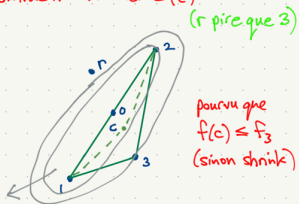 (r pire que 3)
r
2
o
c
3
1
pourvu que
f(c) ≤ f₃
(sinon shrink)